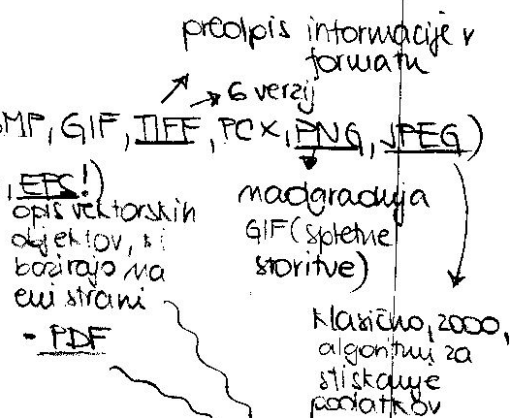 predpis informacije v
formatu
6 verzij
BMP, GIF, TIFF, PCX, PNG, JPEG)
, EPS!)
opis vektorskih
objektov, ki
bazirajo na
eni strani
- PDF
nadgradnja
GIF (spletne
storitve)
Klasično, 2000,
algoritmi za
stiskanje
podatkov